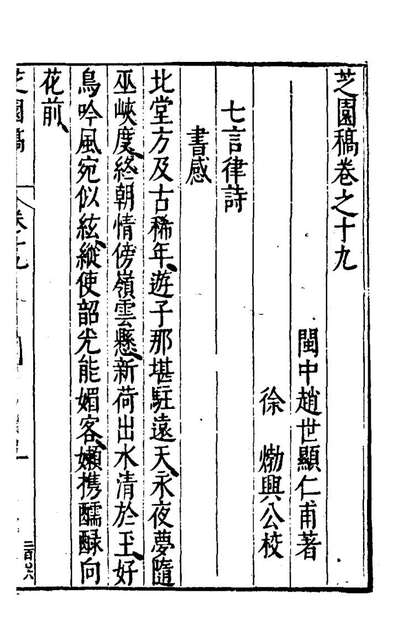 芝園稿卷之十九
閩中趙世顯仁甫著
徐𤊹興公校
七言律詩
書感
北堂方及古稀年、遊子那堪駐遠天、永夜夢隨
巫峽度、終朝情傍嶺雲懸、新荷出水清於玉、好
鳥吟風宛似絃、縱使韶光能媚客、嬾携醽醁向
花前、
芝園稿
卷十九